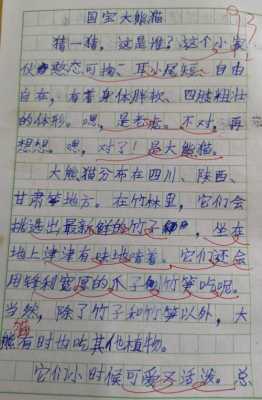 国宝大熊猫
93
猜一猜，这是谁？这个小家
伙憨态可掬、耳小尾短、自由
自在，有着身体胖软、四肢粗壮
的体形。嗯，是老虎。不对，再
想想。嗯，对了！是大熊猫。
大熊猫分布在四川、陕西、
甘肃等地方。在竹林里，它们会
挑选出最新鲜的竹子，坐在
地上津津有味地啃着。它们还会
用锋利宽厚的爪子刨竹笋吃呢。
当然，除了竹子和竹笋以外，大
熊猫有时也吃其他植物。
它们小时候可爱又活泼。总